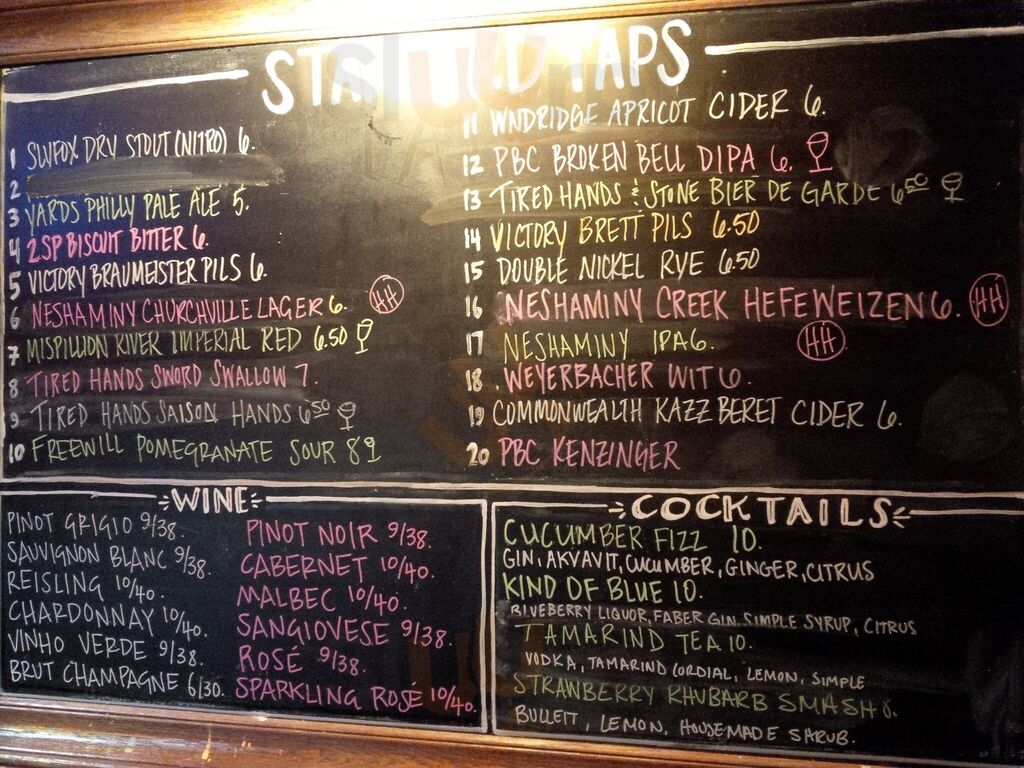 TAPS
1 SLYFOX DRY STOUT (NITRO) 6.
2
3 YARDS PHILLY PALE ALE 5.
4 2SP BISCUIT BITTER 6.
5 VICTORY BRAUMEISTER PILS 6.
6 NESHAMINY CHURCHVILLE LAGER 6. HH
7 MISPILLION RIVER IMPERIAL RED 6.50
8 TIRED HANDS SWORD SWALLOW 7.
9 TIRED HANDS SAISON HANDS 6.50
10 FREEWILL POMEGRANATE SOUR 8
11 WNDRIDGE APRICOT CIDER 6.
12 PBC BROKEN BELL DIPA 6.
13 TIRED HANDS & STONE BIER DE GARDE 6.50
14 VICTORY BRETT PILS 6.50
15 DOUBLE NICKEL RYE 6.50
16 NESHAMINY CREEK HEFEWEIZEN 6. HH
17 NESHAMINY IPA 6. HH
18 WEYERBACHER WIT 6
19 COMMONWEALTH KAZZ BERET CIDER 6.
20 PBC KENZINGER
WINE
PINOT GRIGIO 9/38.
SAUVIGNON BLANC 9/38.
REISLING 10/40.
CHARDONNAY 10/40.
VINHO VERDE 9/38.
BRUT CHAMPAGNE 6/30.
PINOT NOIR 9/38.
CABERNET 10/40.
MALBEC 10/40.
SANGIOVESE 9/38.
ROSÉ 9/38.
SPARKLING ROSÉ 10/40.
COCKTAILS
CUCUMBER FIZZ 10.
GIN, AKVAVIT, CUCUMBER, GINGER, CITRUS
KIND OF BLUE 10.
BLUEBERRY LIQUOR, FABER GIN, SIMPLE SYRUP, CITRUS
TAMARIND TEA 10.
VODKA, TAMARIND CORDIAL, LEMON, SIMPLE
STRAWBERRY RHUBARB SMASH 8.
BULLEIT, LEMON, HOUSEMADE SHRUB.